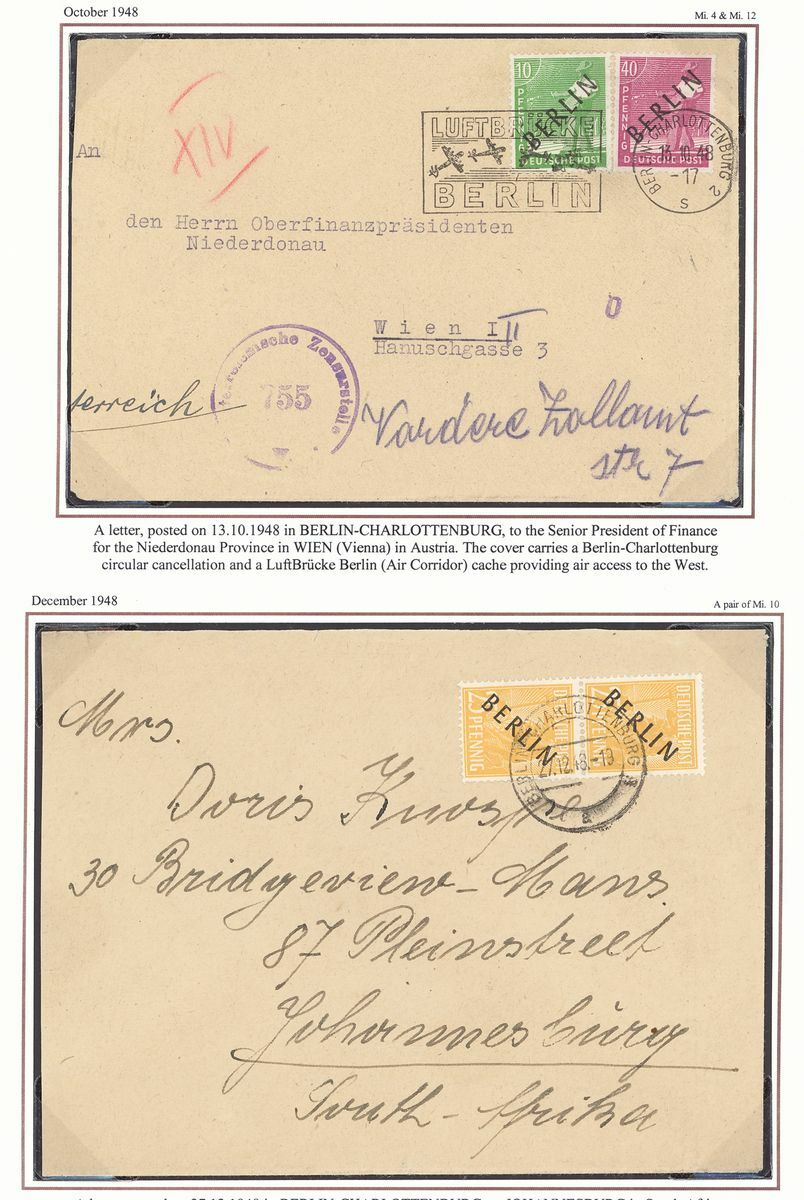 October 1948
Mi. 4 & Mi. 12
10 PFENNIG DEUTSCHE POST BERLIN
40 PFENNIG DEUTSCHE POST BERLIN
LUFTBRÜCKE
BERLIN
CHARLOTTENBURG 2
13.10.48
-17
S
XIV
An
den Herrn Oberfinanzpräsidenten
Niederdonau
Wien III
Hanuschgasse 3
Zensurstelle
755
terreich
Vordere Zollamt
str 7
A letter, posted on 13.10.1948 in BERLIN-CHARLOTTENBURG, to the Senior President of Finance
for the Niederdonau Province in WIEN (Vienna) in Austria. The cover carries a Berlin-Charlottenburg
circular cancellation and a LuftBrücke Berlin (Air Corridor) cache providing air access to the West.
December 1948
A pair of Mi. 10
25 PFENNIG BERLIN
DEUTSCHE POST BERLIN
BERLIN CHARLOTTENBURG
27.12.48.-19
Mrs.
Doris
30 Bridgeview-Mans.
87 Pleinstreet
Johannesburg
South-Afrika